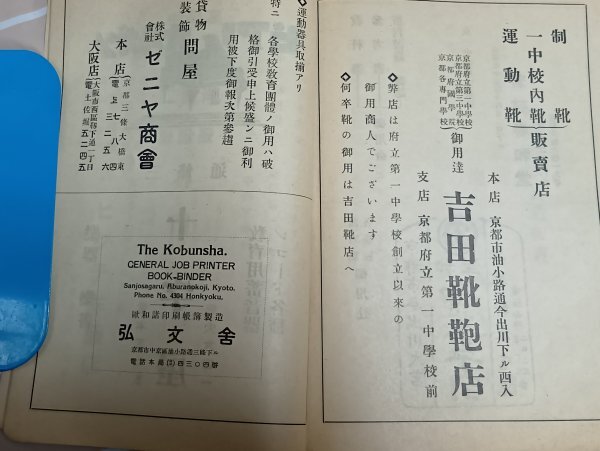 制靴
運動靴
一中校内靴販賣店
京都府立第一中學校
京都府立第三中學校
京都府國學院
京都各專門學校
御用達
本店 京都市油小路通今出川下ル西入
吉田靴鞄店
支店 京都府立第一中學校前
◇弊店は府立第一中學校創立以來の
御用商人でございます
◇何卒靴の御用は吉田靴店へ
◇運動器具取揃アリ
特ニ
各學校敎育團體ノ御用ハ破
格御引受申上候盛ンニ御利
用被下度御報次第參趨
貨物
裝飾
問屋
株式
會社
ゼニヤ商會
本店
京都三條大橋東
大阪店
大阪市西區靱下通一丁目
電土佐堀五二四五
The Kobunsha.
GENERAL JOB PRINTER
BOOK-BINDER
Sanjosagaru, Aburanokoji, Kyoto.
Phone No. 4304 Honkyoku.
歐和諸印刷帳簿製造
弘文舍
京都市中京區油小路通三條下ル
電話本局(2)四三〇四番